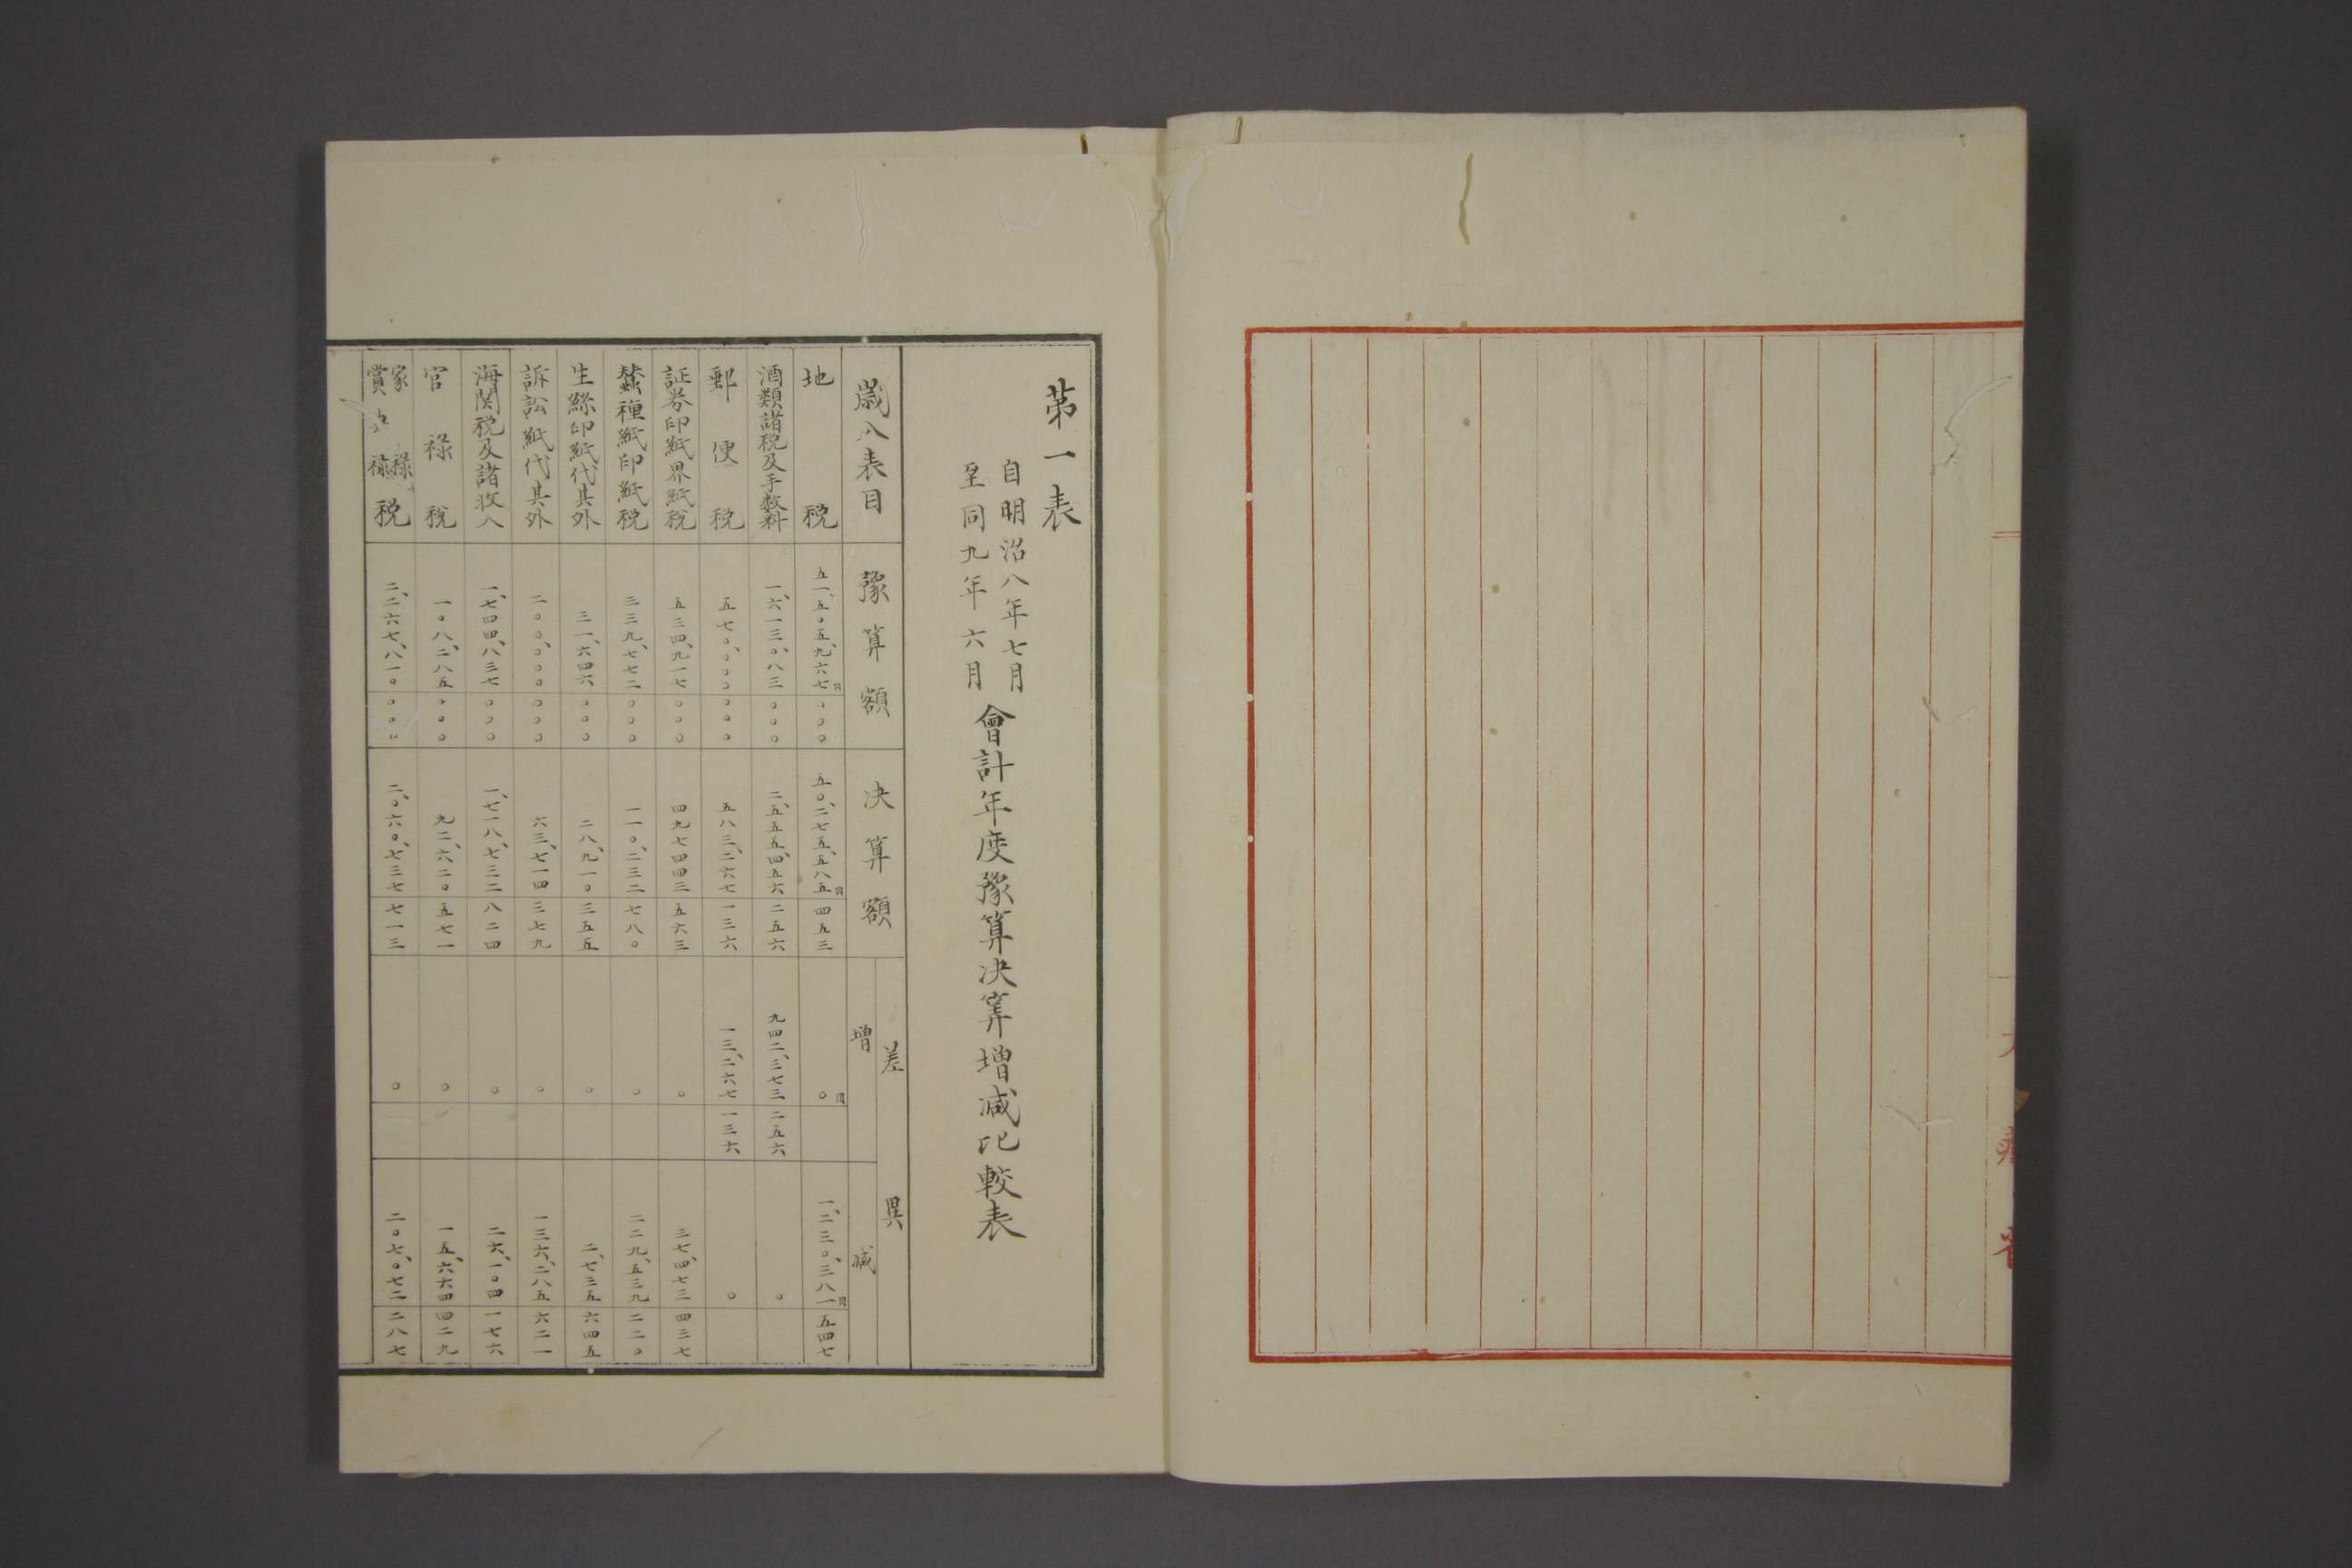 第一表
自明治八年七月
至同九年六月
會計年度豫算决算増减比較表
歳入表目 豫算額 决算額 差異 増 减
地税 五一、五〇五、九六七円 〇〇〇 五〇、二七五、五八五円 四五三 〇円 一、二三〇、三八一円 五四七
酒類諸税及手数料 一、六一三、〇八三 〇〇〇 二、五五五、四五六 二五六 九四二、三七三 二五六 〇
郵便税 五七〇、〇〇〇 〇〇〇 五八三、二六七 一三六 一三、二六七 一三六 〇
証券印紙界紙税 五三四、九一七 〇〇〇 四九七四四三 五六三 〇 三七、四七三 四三七
蠶種紙印紙税 三三九、七七二 〇〇〇 一一〇、二三二 七八〇 〇 二二九、五三九 二二〇
生絲印紙代其外 三一、六四六 〇〇〇 二八、九一〇 三五五 〇 二、七三五 六四五
訴訟紙代其外 二〇〇、〇〇〇 〇〇〇 六三、七一四 三七九 〇 一三六、二八五 六二一
海関税及諸收入 一、七四四、八三七 〇〇〇 一、七一八、七三二 八二四 〇 二六、一〇四 一七六
官禄税 一〇八、二八五 〇〇〇 九二、六二〇 五七一 〇 一五、六六四 四二九
家禄賞典禄税 二、二六七、八一〇 〇〇〇 二、〇六〇、七三七 七一三 〇 二〇七、〇七二 二八七